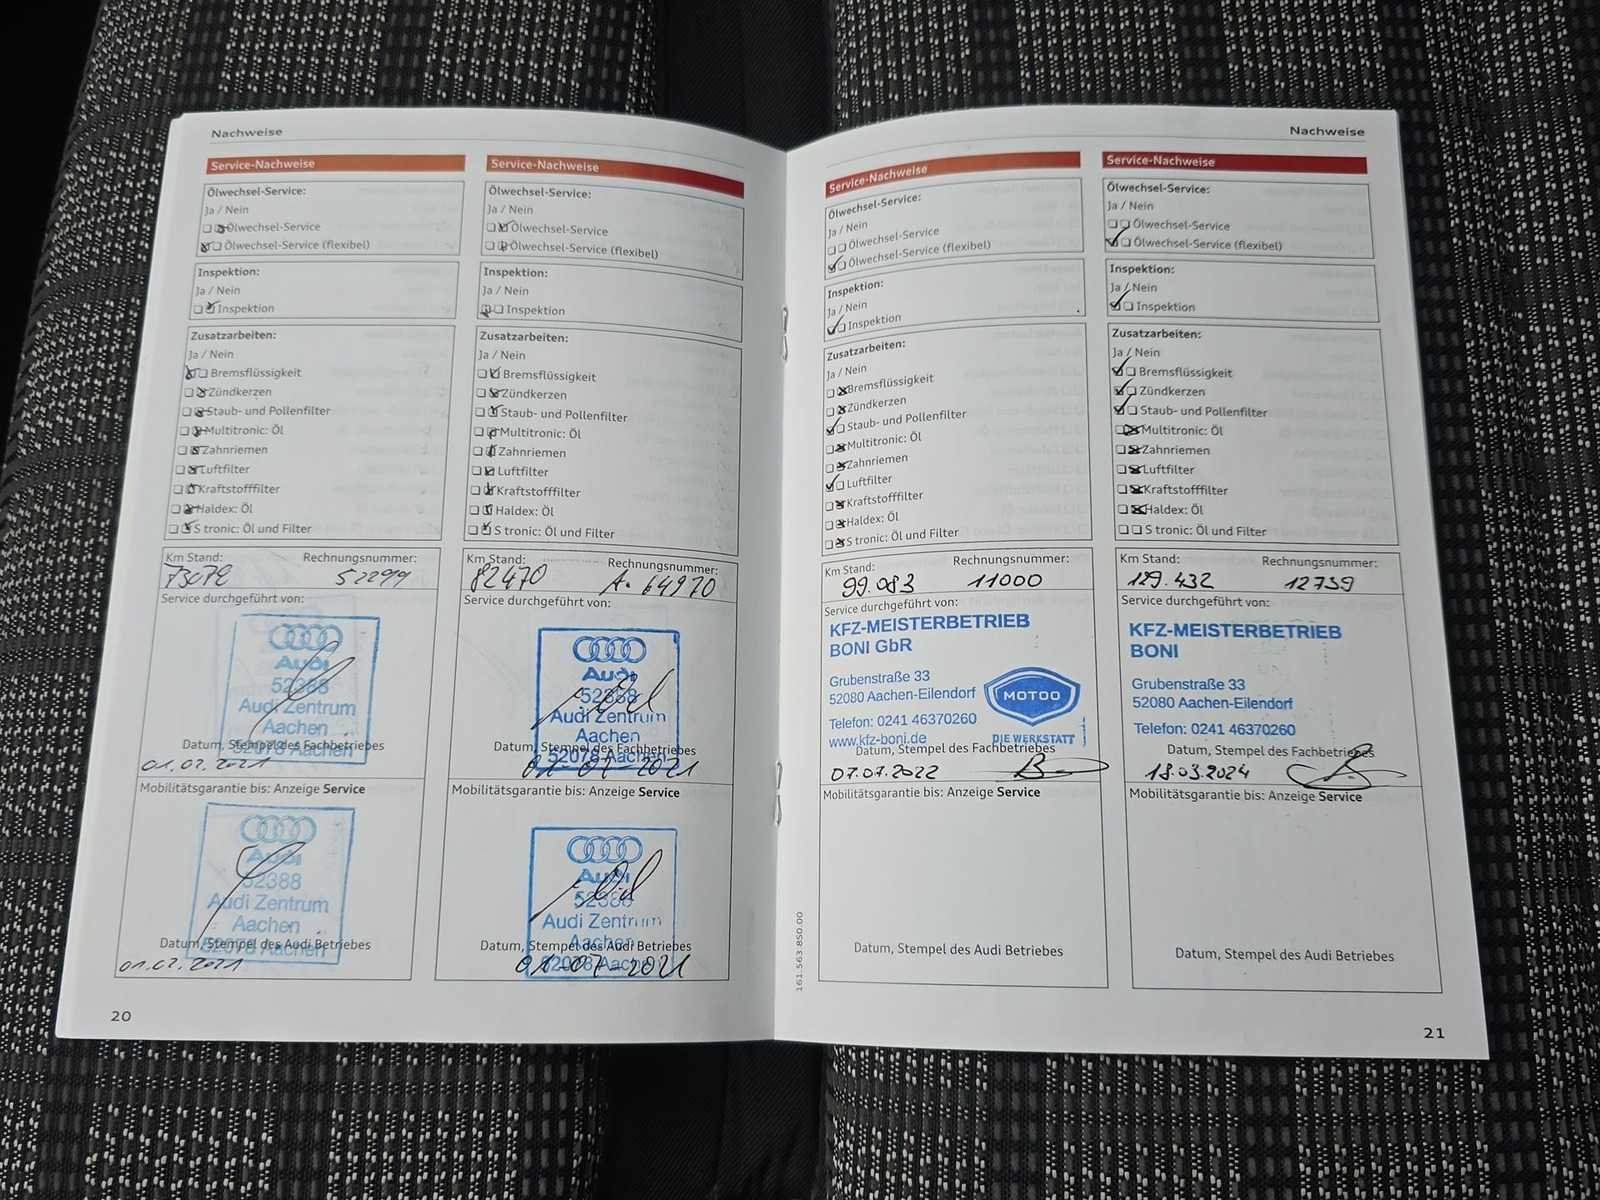 Nachweise
Service-Nachweise
Ölwechsel-Service:
Ja / Nein
Ölwechsel-Service
Ölwechsel-Service (flexibel)
Inspektion:
Ja / Nein
Inspektion
Zusatzarbeiten:
Ja / Nein
Bremsflüssigkeit
Zündkerzen
Staub- und Pollenfilter
Multitronic: Öl
Zahnriemen
Luftfilter
Kraftstofffilter
Haldex: Öl
S tronic: Öl und Filter
Km Stand: Rechnungsnummer:
Service durchgeführt von:
Audi
52388
Audi Zentrum
Aachen
52078 Aachen
Datum, Stempel des Fachbetriebes
01.02.2021
Mobilitätsgarantie bis: Anzeige Service
Audi
52388
Audi Zentrum
Aachen
52078 Aachen
Datum, Stempel des Audi Betriebes
01.02.2021
20
Service-Nachweise
Ölwechsel-Service:
Ja / Nein
Ölwechsel-Service
Ölwechsel-Service (flexibel)
Inspektion:
Ja / Nein
Inspektion
Zusatzarbeiten:
Ja / Nein
Bremsflüssigkeit
Zündkerzen
Staub- und Pollenfilter
Multitronic: Öl
Zahnriemen
Luftfilter
Kraftstofffilter
Haldex: Öl
S tronic: Öl und Filter
Km Stand: Rechnungsnummer:
82470 A. 64970
Service durchgeführt von:
Audi
52388
Audi Zentrum
Aachen
52078 Aachen
Datum, Stempel des Fachbetriebes
01-07-2021
Mobilitätsgarantie bis: Anzeige Service
Audi
52388
Audi Zentrum
Aachen
52078 Aachen
Datum, Stempel des Audi Betriebes
01-07-2021
Nachweise
Service-Nachweise
Ölwechsel-Service:
Ja / Nein
Ölwechsel-Service
Ölwechsel-Service (flexibel)
Inspektion:
Ja / Nein
Inspektion
Zusatzarbeiten:
Ja / Nein
Bremsflüssigkeit
Zündkerzen
Staub- und Pollenfilter
Multitronic: Öl
Zahnriemen
Luftfilter
Kraftstofffilter
Haldex: Öl
S tronic: Öl und Filter
Km Stand: Rechnungsnummer:
99.083 11000
Service durchgeführt von:
KFZ-MEISTERBETRIEB
BONI GbR
Grubenstraße 33
52080 Aachen-Eilendorf
Telefon: 0241 46370260
www.kfz-boni.de
MOTOO
DIE WERKSTATT
Datum, Stempel des Fachbetriebes
07.07.2022
Mobilitätsgarantie bis: Anzeige Service
Datum, Stempel des Audi Betriebes
161.563.850.00
Service-Nachweise
Ölwechsel-Service:
Ja / Nein
Ölwechsel-Service
Ölwechsel-Service (flexibel)
Inspektion:
Ja / Nein
Inspektion
Zusatzarbeiten:
Ja / Nein
Bremsflüssigkeit
Zündkerzen
Staub- und Pollenfilter
Multitronic: Öl
Zahnriemen
Luftfilter
Kraftstofffilter
Haldex: Öl
S tronic: Öl und Filter
Km Stand: Rechnungsnummer:
129.432 12759
Service durchgeführt von:
KFZ-MEISTERBETRIEB
BONI
Grubenstraße 33
52080 Aachen-Eilendorf
Telefon: 0241 46370260
Datum, Stempel des Fachbetriebes
18.03.2024
Mobilitätsgarantie bis: Anzeige Service
Datum, Stempel des Audi Betriebes
21